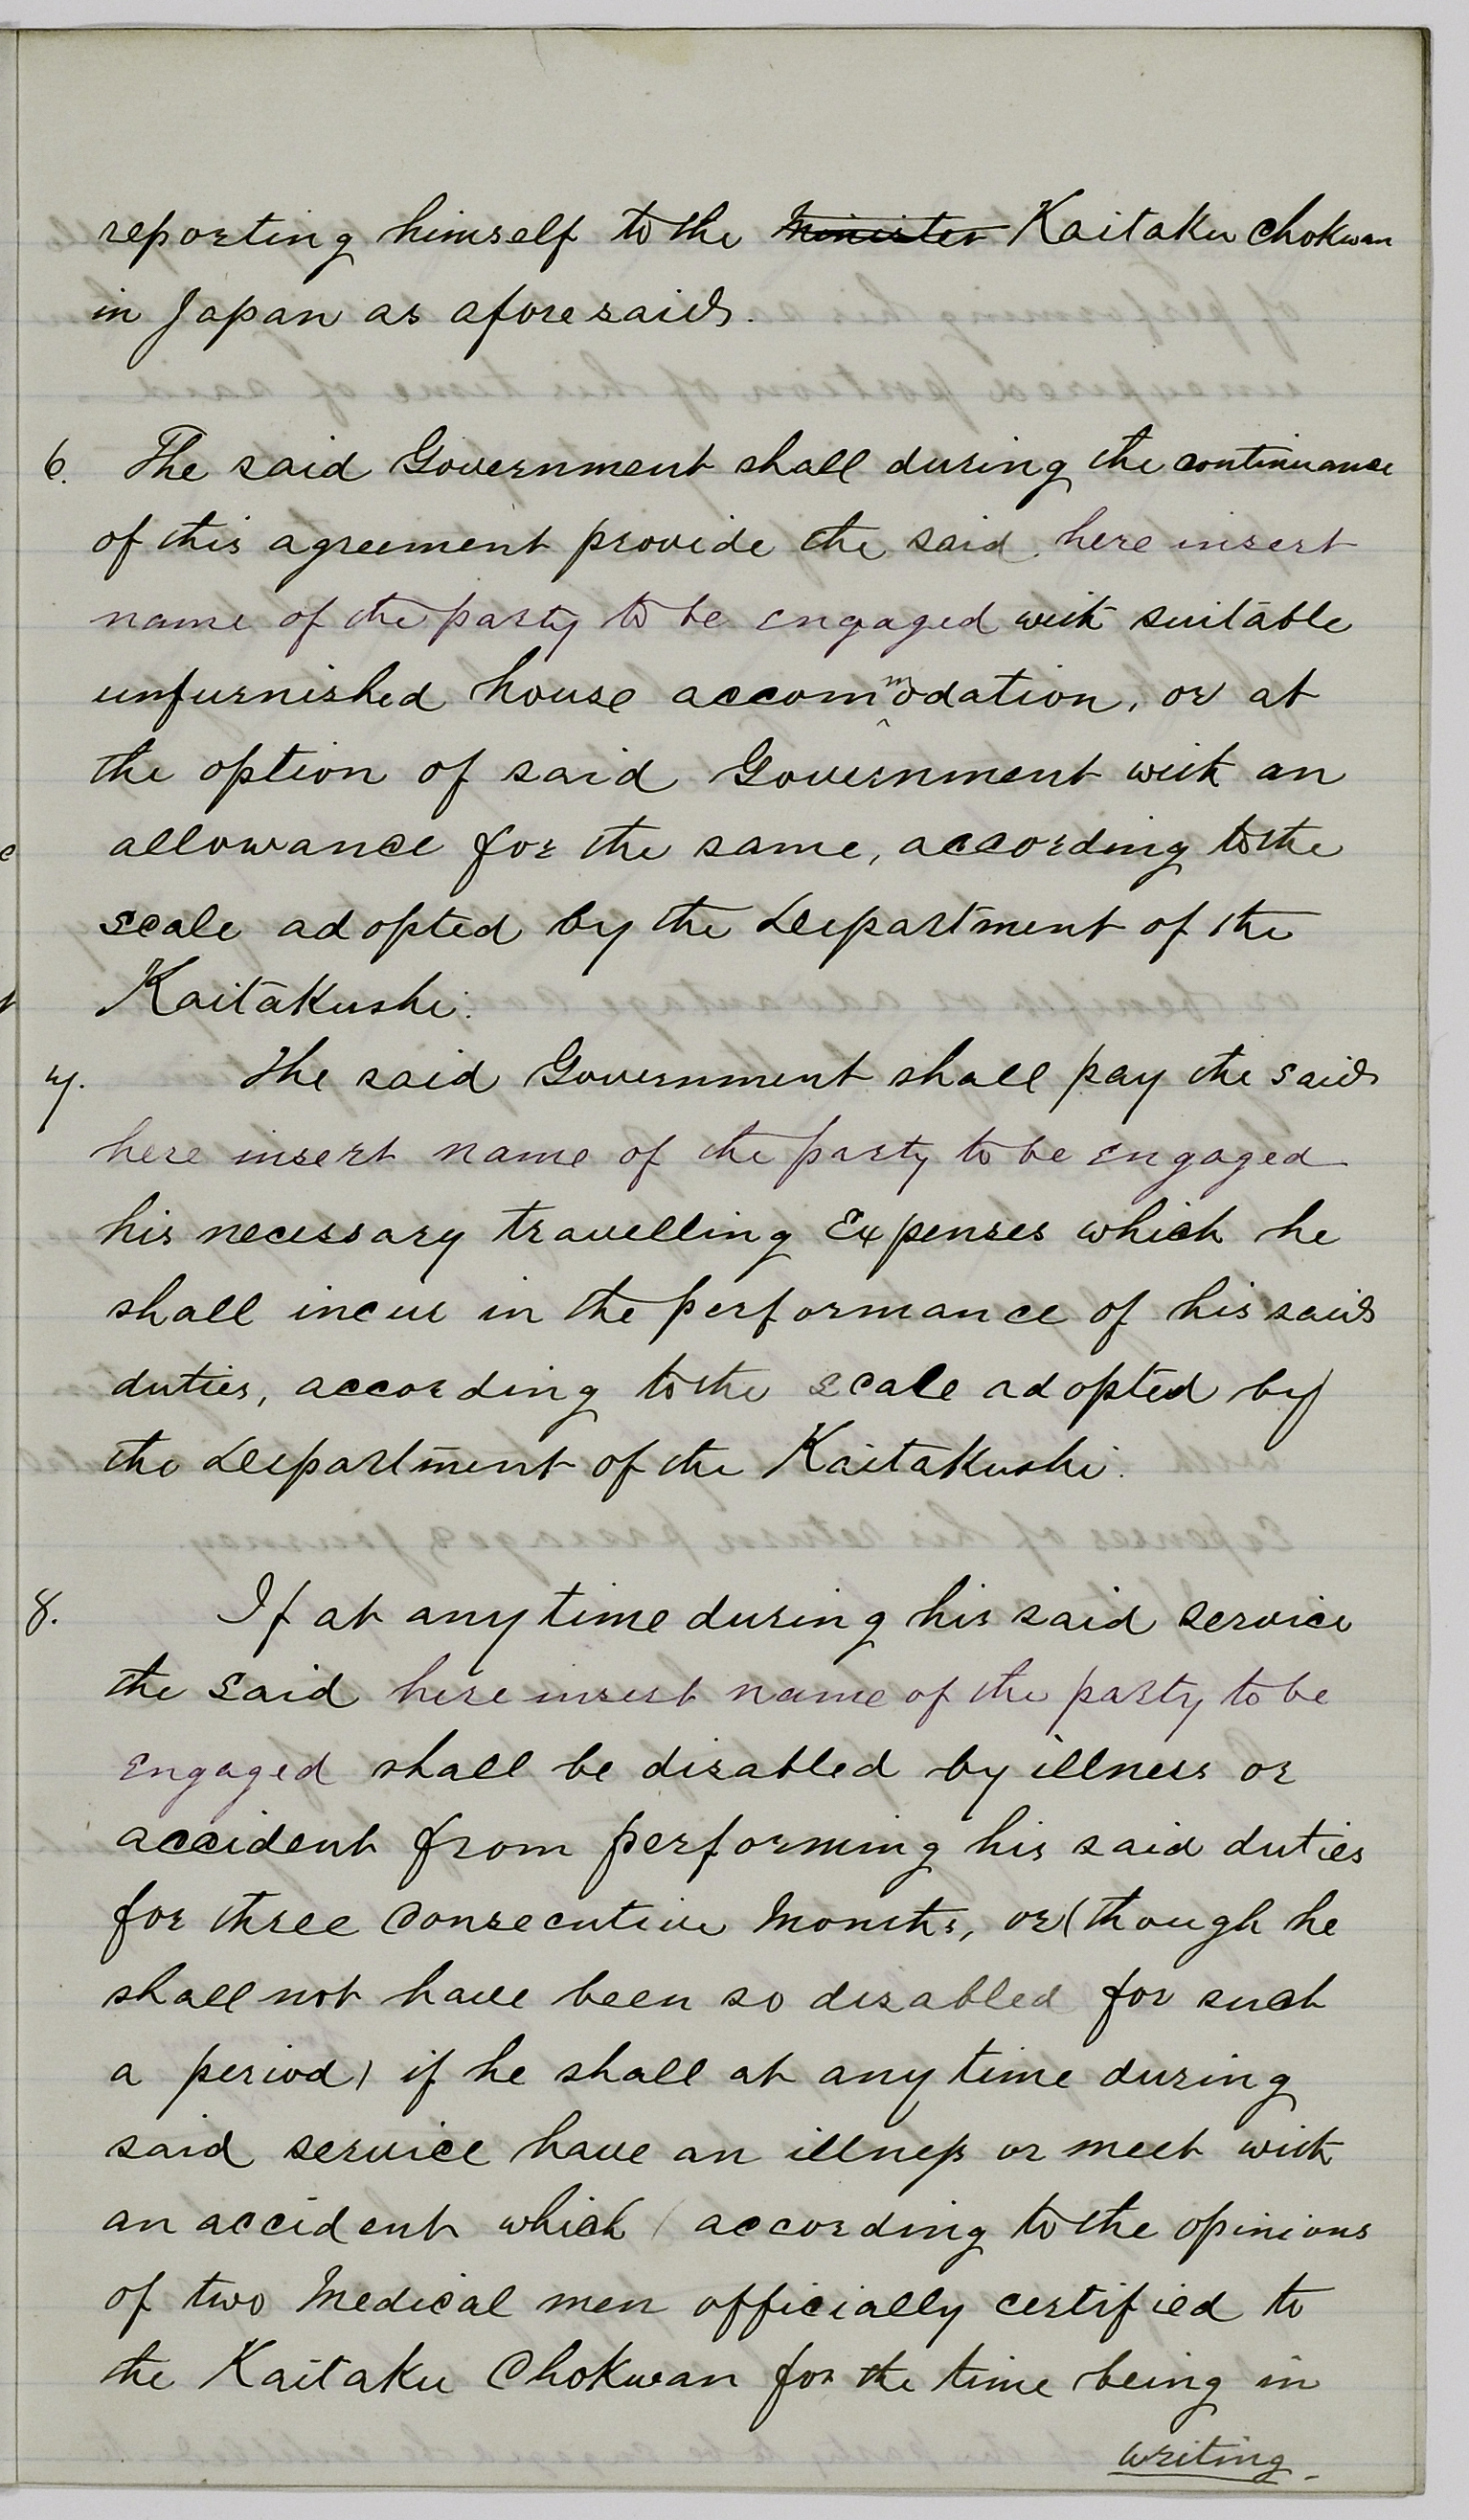 reporting himself to the Minister Kaitaku Chokwan
in Japan as aforesaid.
6. The said Government shall during the continuance
of this agreement provide the said here insert
name of the party to be engaged with suitable
unfurnished house accommodation, or at
the option of said Government with an
allowance for the same, according to the
scale adopted by the Department of the
Kaitakushi.
7. The said Government shall pay the said
here insert name of the party to be engaged
his necessary travelling Expenses which he
shall incur in the performance of his said
duties, according to the scale adopted by
the Department of the Kaitakushi.
8. If at any time during his said service
the said here insert name of the party to be
engaged shall be disabled by illness or
accident from performing his said duties
for three Consecutive Months, or (though he
shall not have been so disabled for such
a period) if he shall at any time during
said service have an illness or meet with
an accident which (according to the opinions
of two Medical men officially certified to
the Kaitaku Chokwan for the time being in
writing